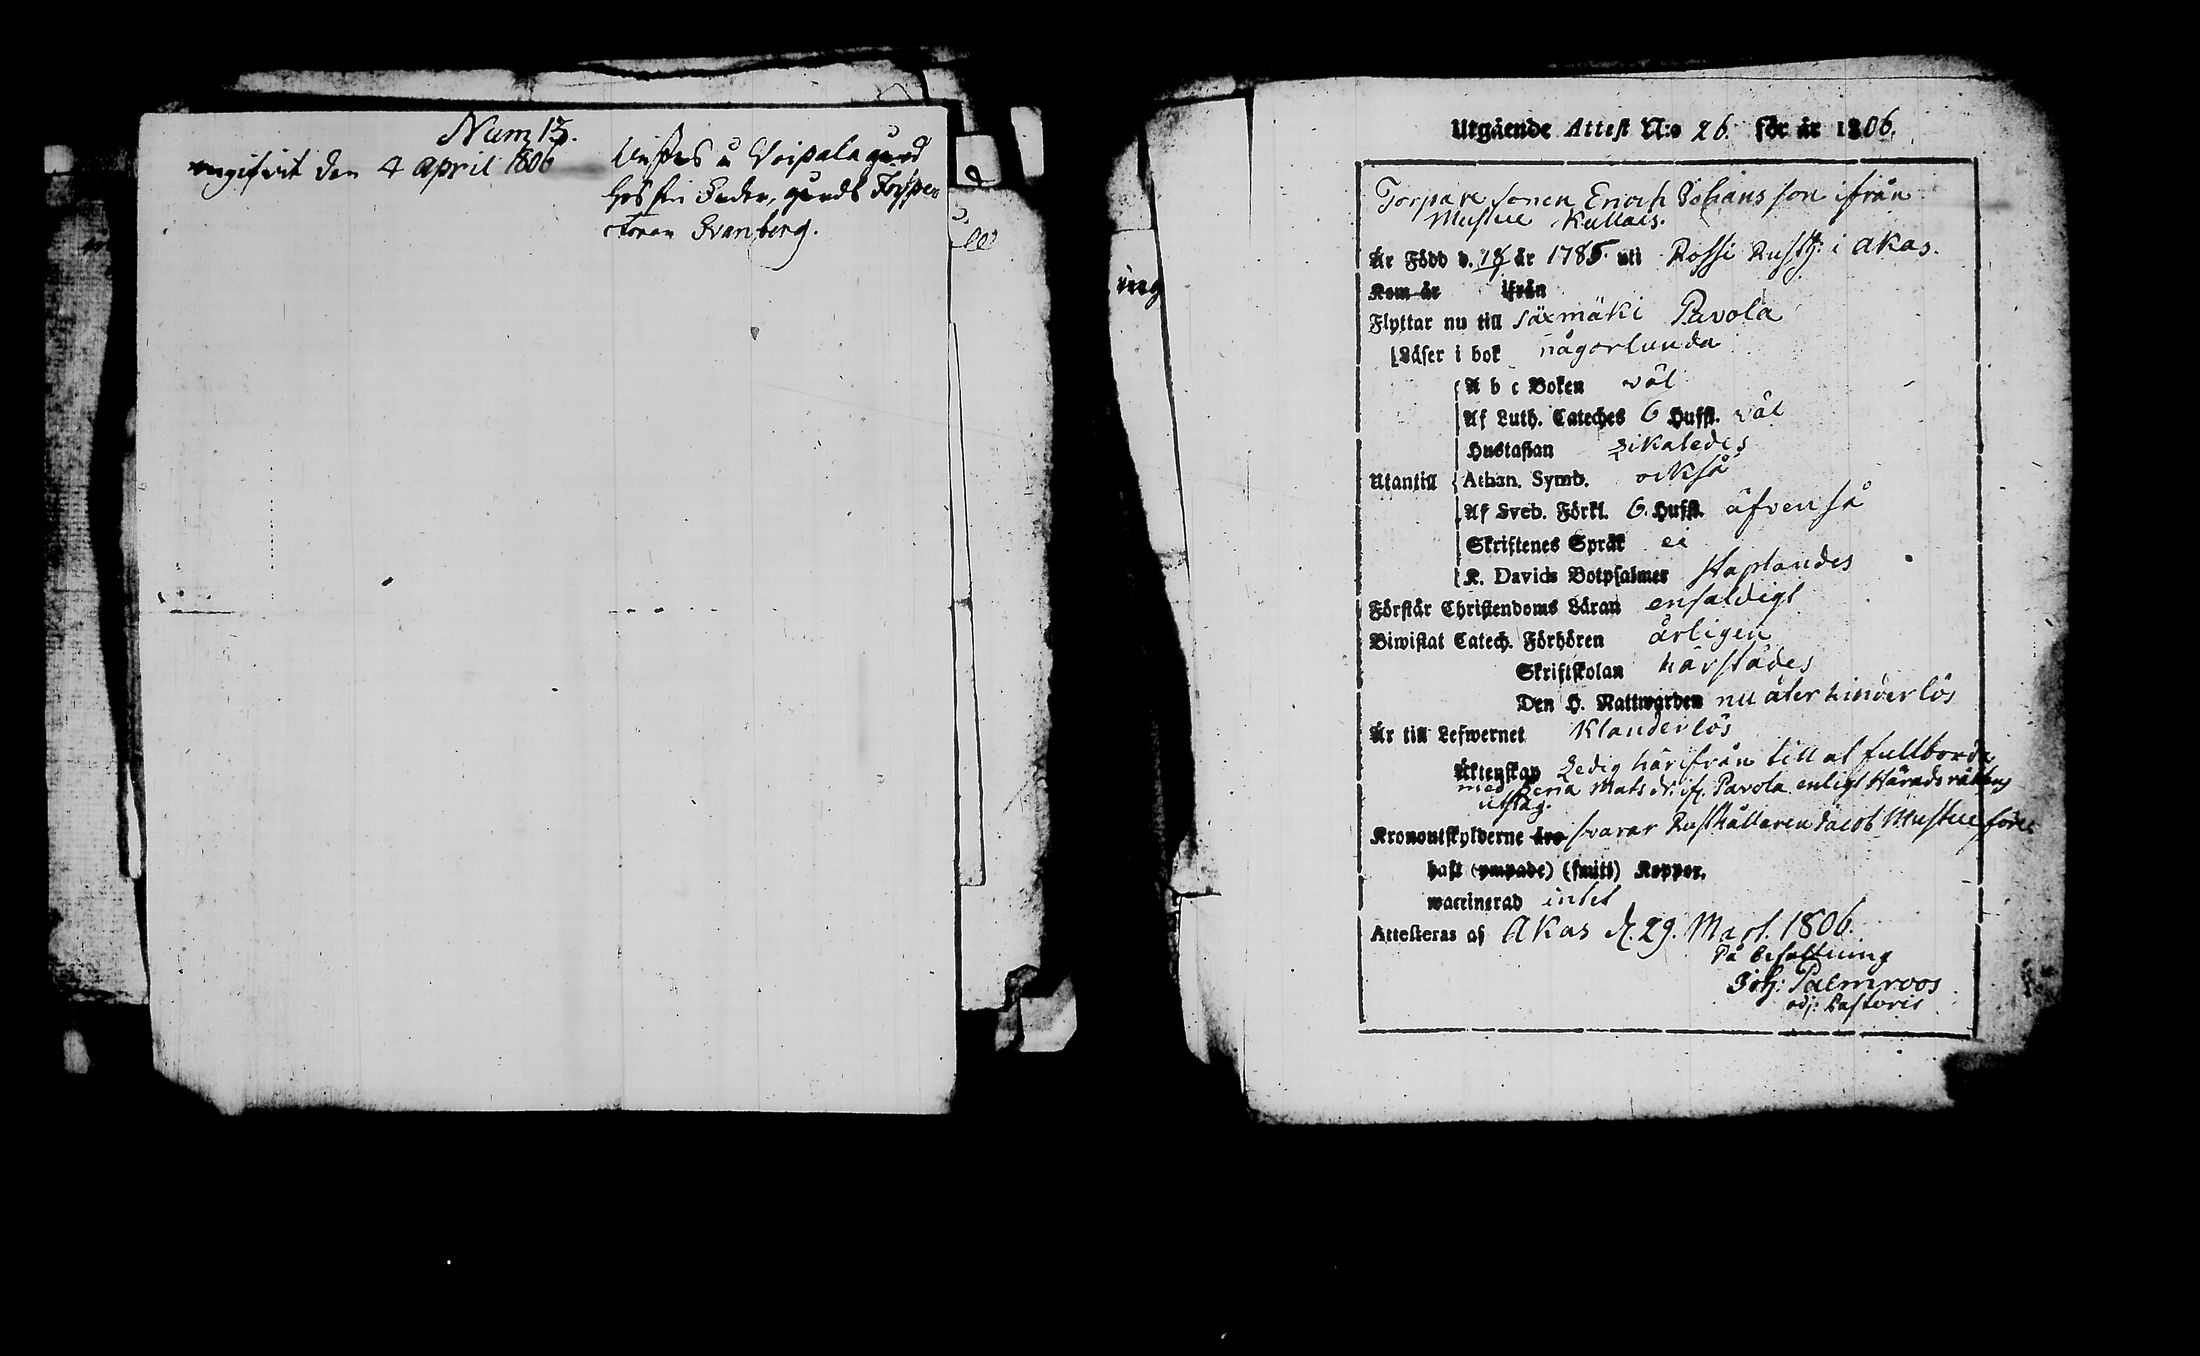 Num 13.
den 4 April 1806
Voipala gård
hos sin Broder, gårds Inspec
toren Svanberg.
Utgående Attest N:o 26. för år 1806.
Torpare sonen Erich Johansson ifrån
Mustue Kallais.
År Född d. 18 år 1785. uti Rossi Rusth: i Akas.
Kom år ifrån
Flyttar nu till Säxmäki Pavola
Läser i bok någorlunda
A b c Boken väl
Af Luth. Cateches 6 Hufst. väl
Hustaflan Likaledes
Utantill Athan. Symb. också
Af Sveb. Förkl. 6. Hufst. äfven så
Skriftenes Språk ei
K. Davids Botpsalmer staplandes
Förstår Christendoms Läran enfaldigt
Biwistat Catech. Förhören årligen
Skriftskolan härstädes
Den H. Nattwarden nu åter hinderlös
År till Lefwernet Klanderlös
Äktenskap Ledig härifrån till at fullborda
med Mats dr. if. Pavola enligt Häradsrättens
utslag.
Kronoutskylderne äro svarar Rusthållaren Jacob Mustue före
haft (ympade) (smitt) Koppor.
waccinerad intet
Attesteras af Akas d. 29. Mart. 1806.
På befallning
Joh: Palmroos
adj: Pastoris